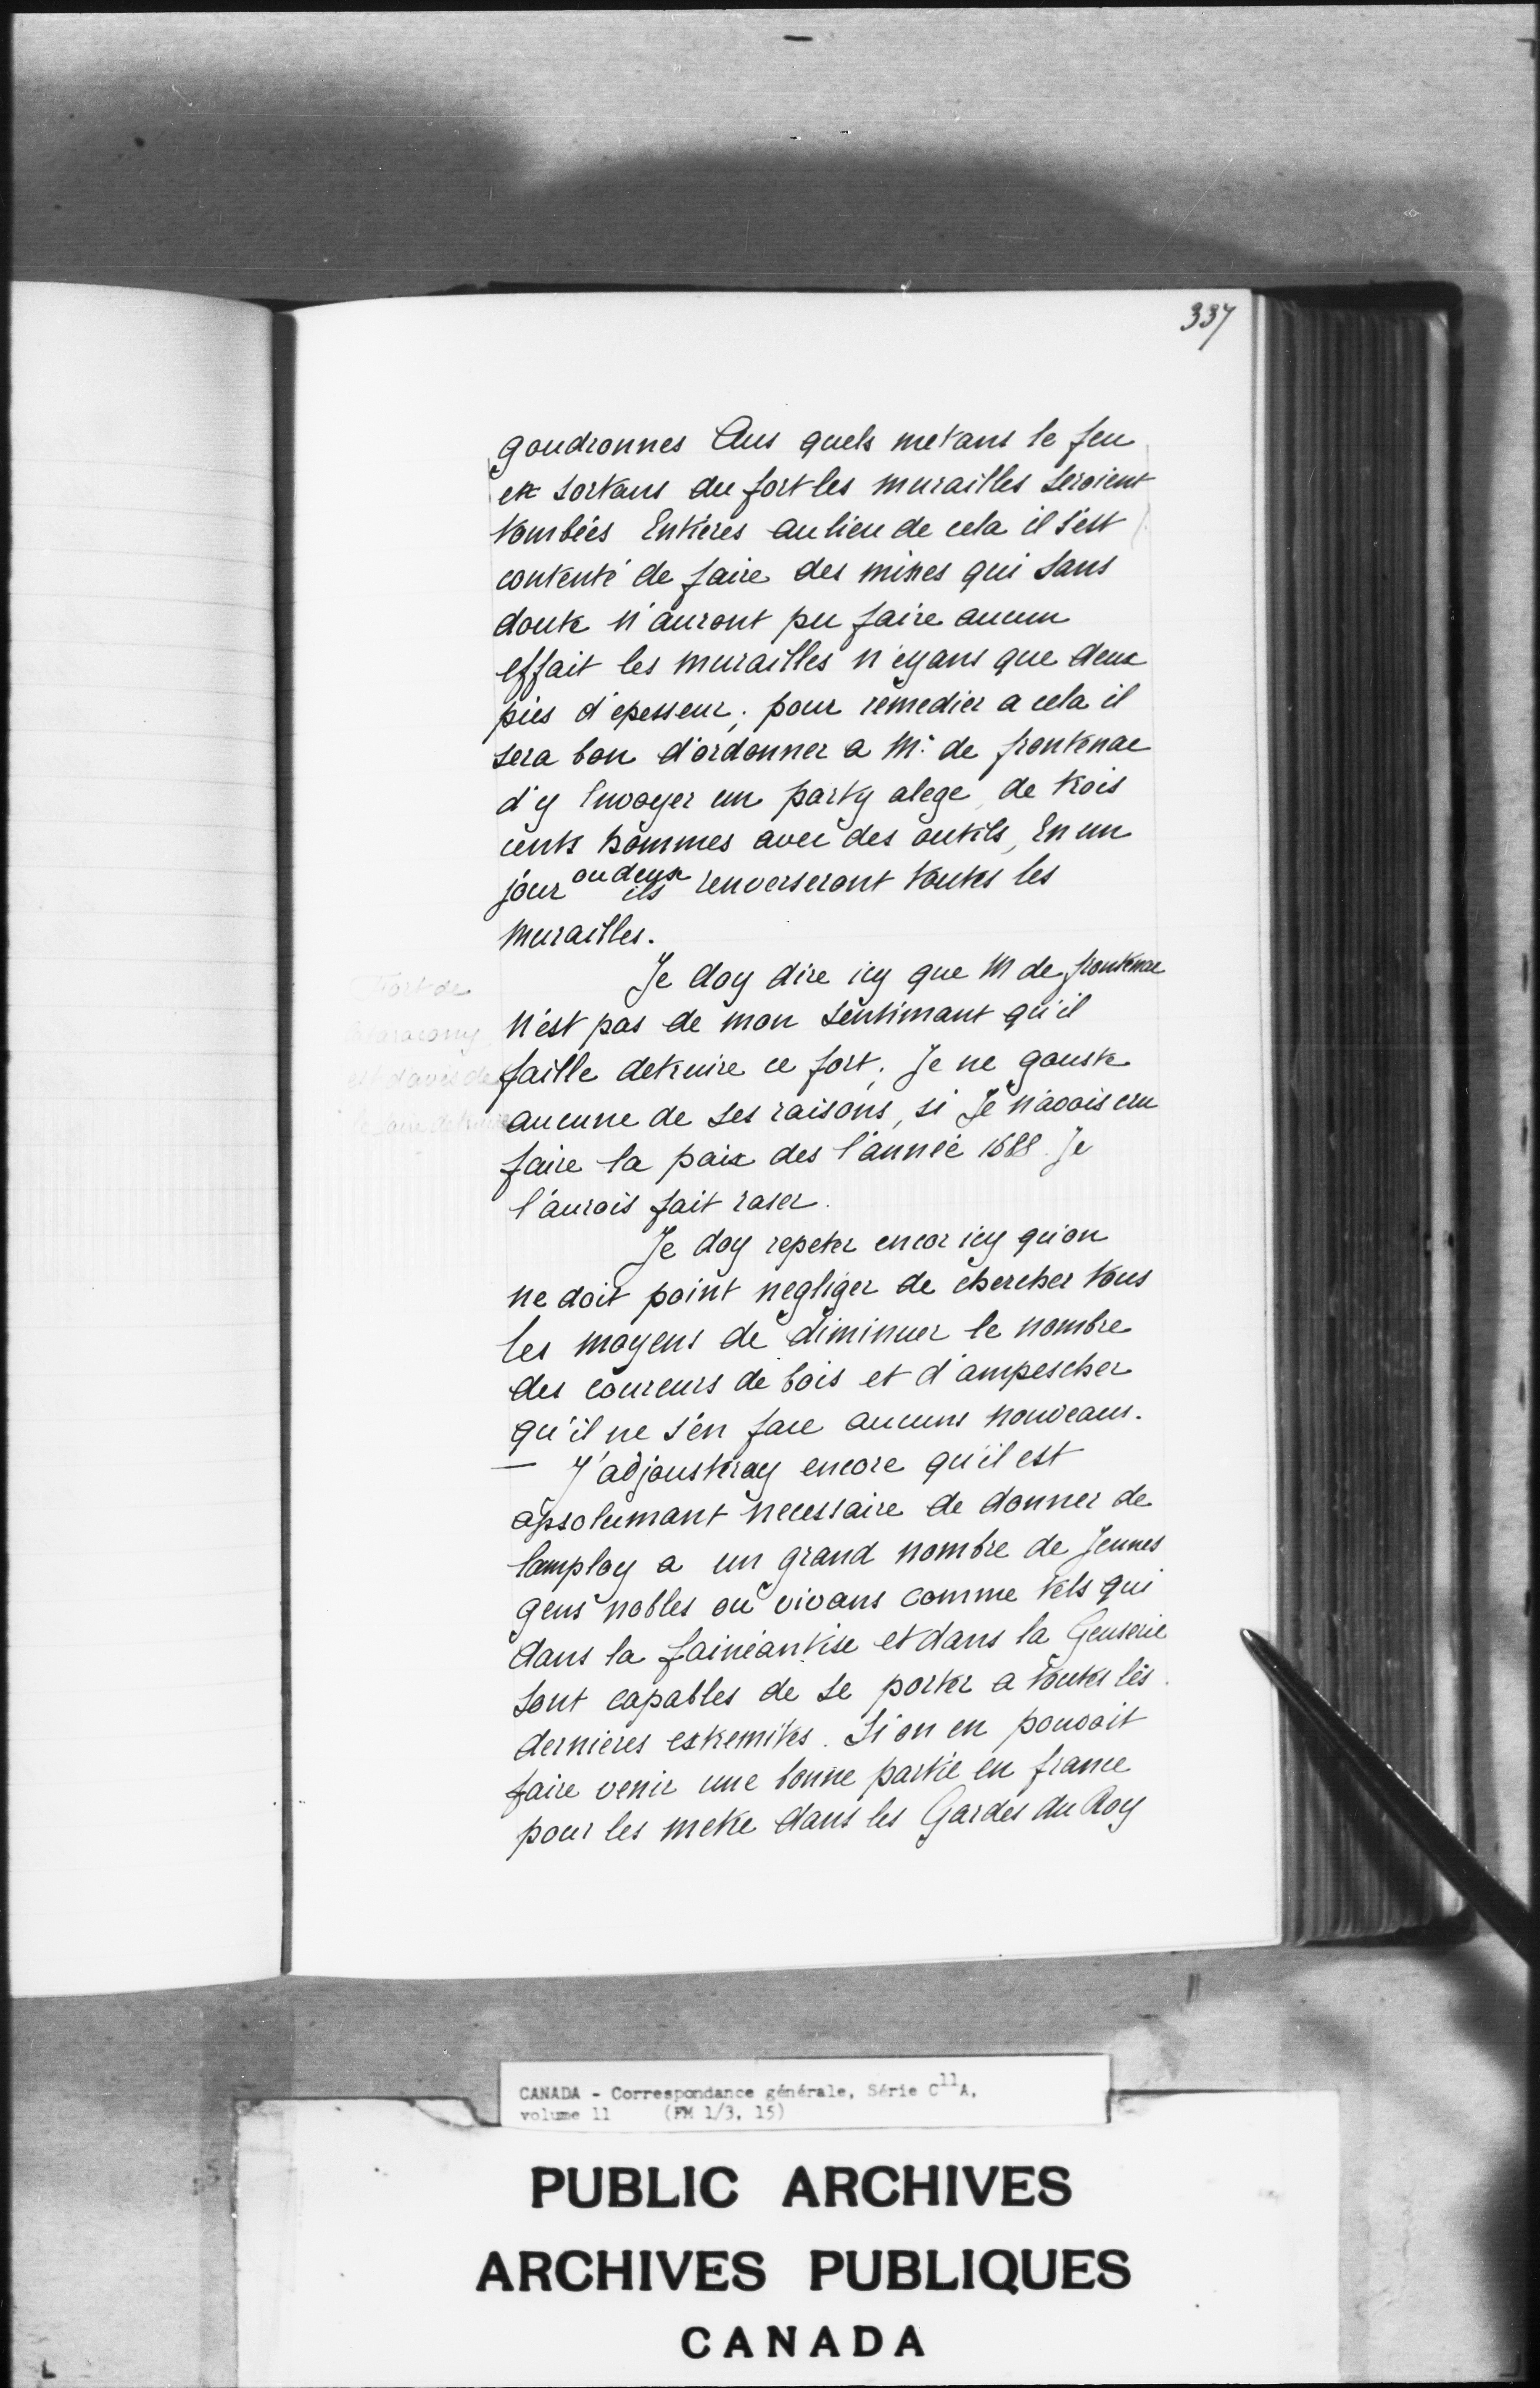 337
goudronnes Aus quels metans le feu
et sortans du fort les murailles seroient
tombées Entières au lieu de cela il s'est
contenté de faire des mines qui sans
doute n'auront pu faire aucun
effait les murailles n'eyans que deux
piés d'epesseur; pour remedier a cela il
sera bon d'ordonner a Mr de frontenac
d'y Envoyer un party alege de trois
cents hommes avec des outils, En un
jour ou deux ils renverseront toutes les
murailles.
Je doy dire icy que M de frontenac
n'est pas de mon sentimant qu'il
faille detruire ce fort; Je ne gouste
aucune de ses raisons, si Je n'avois cru
faire la paix des l'année 1688. Je
l'aurois fait raser.
Fort de
est d'avis de
le faire detruire
Je doy repeter encor icy qu'on
ne doit point negliger de chercher tous
les moyens de diminuer le nombre
des coureurs de bois et d'ampescher
qu'il ne s'en face aucuns nouveaus.
— J'adjousteray encore qu'il est
apsolumant necessaire de donner de
lamploy a un grand nombre de Jeunes
gens nobles ou vivans comme tels qui
dans la fainéantise et dans la Geuserie
sont capables de se porter a toutes les
dernières extremites. Si on en pouvoit
faire venir une bonne partie en france
pour les metre dans les Gardes du Roy
CANADA - Correspondance générale, Série C11A,
volume 11 (FM 1/3, 15)
PUBLIC ARCHIVES
ARCHIVES PUBLIQUES
CANADA